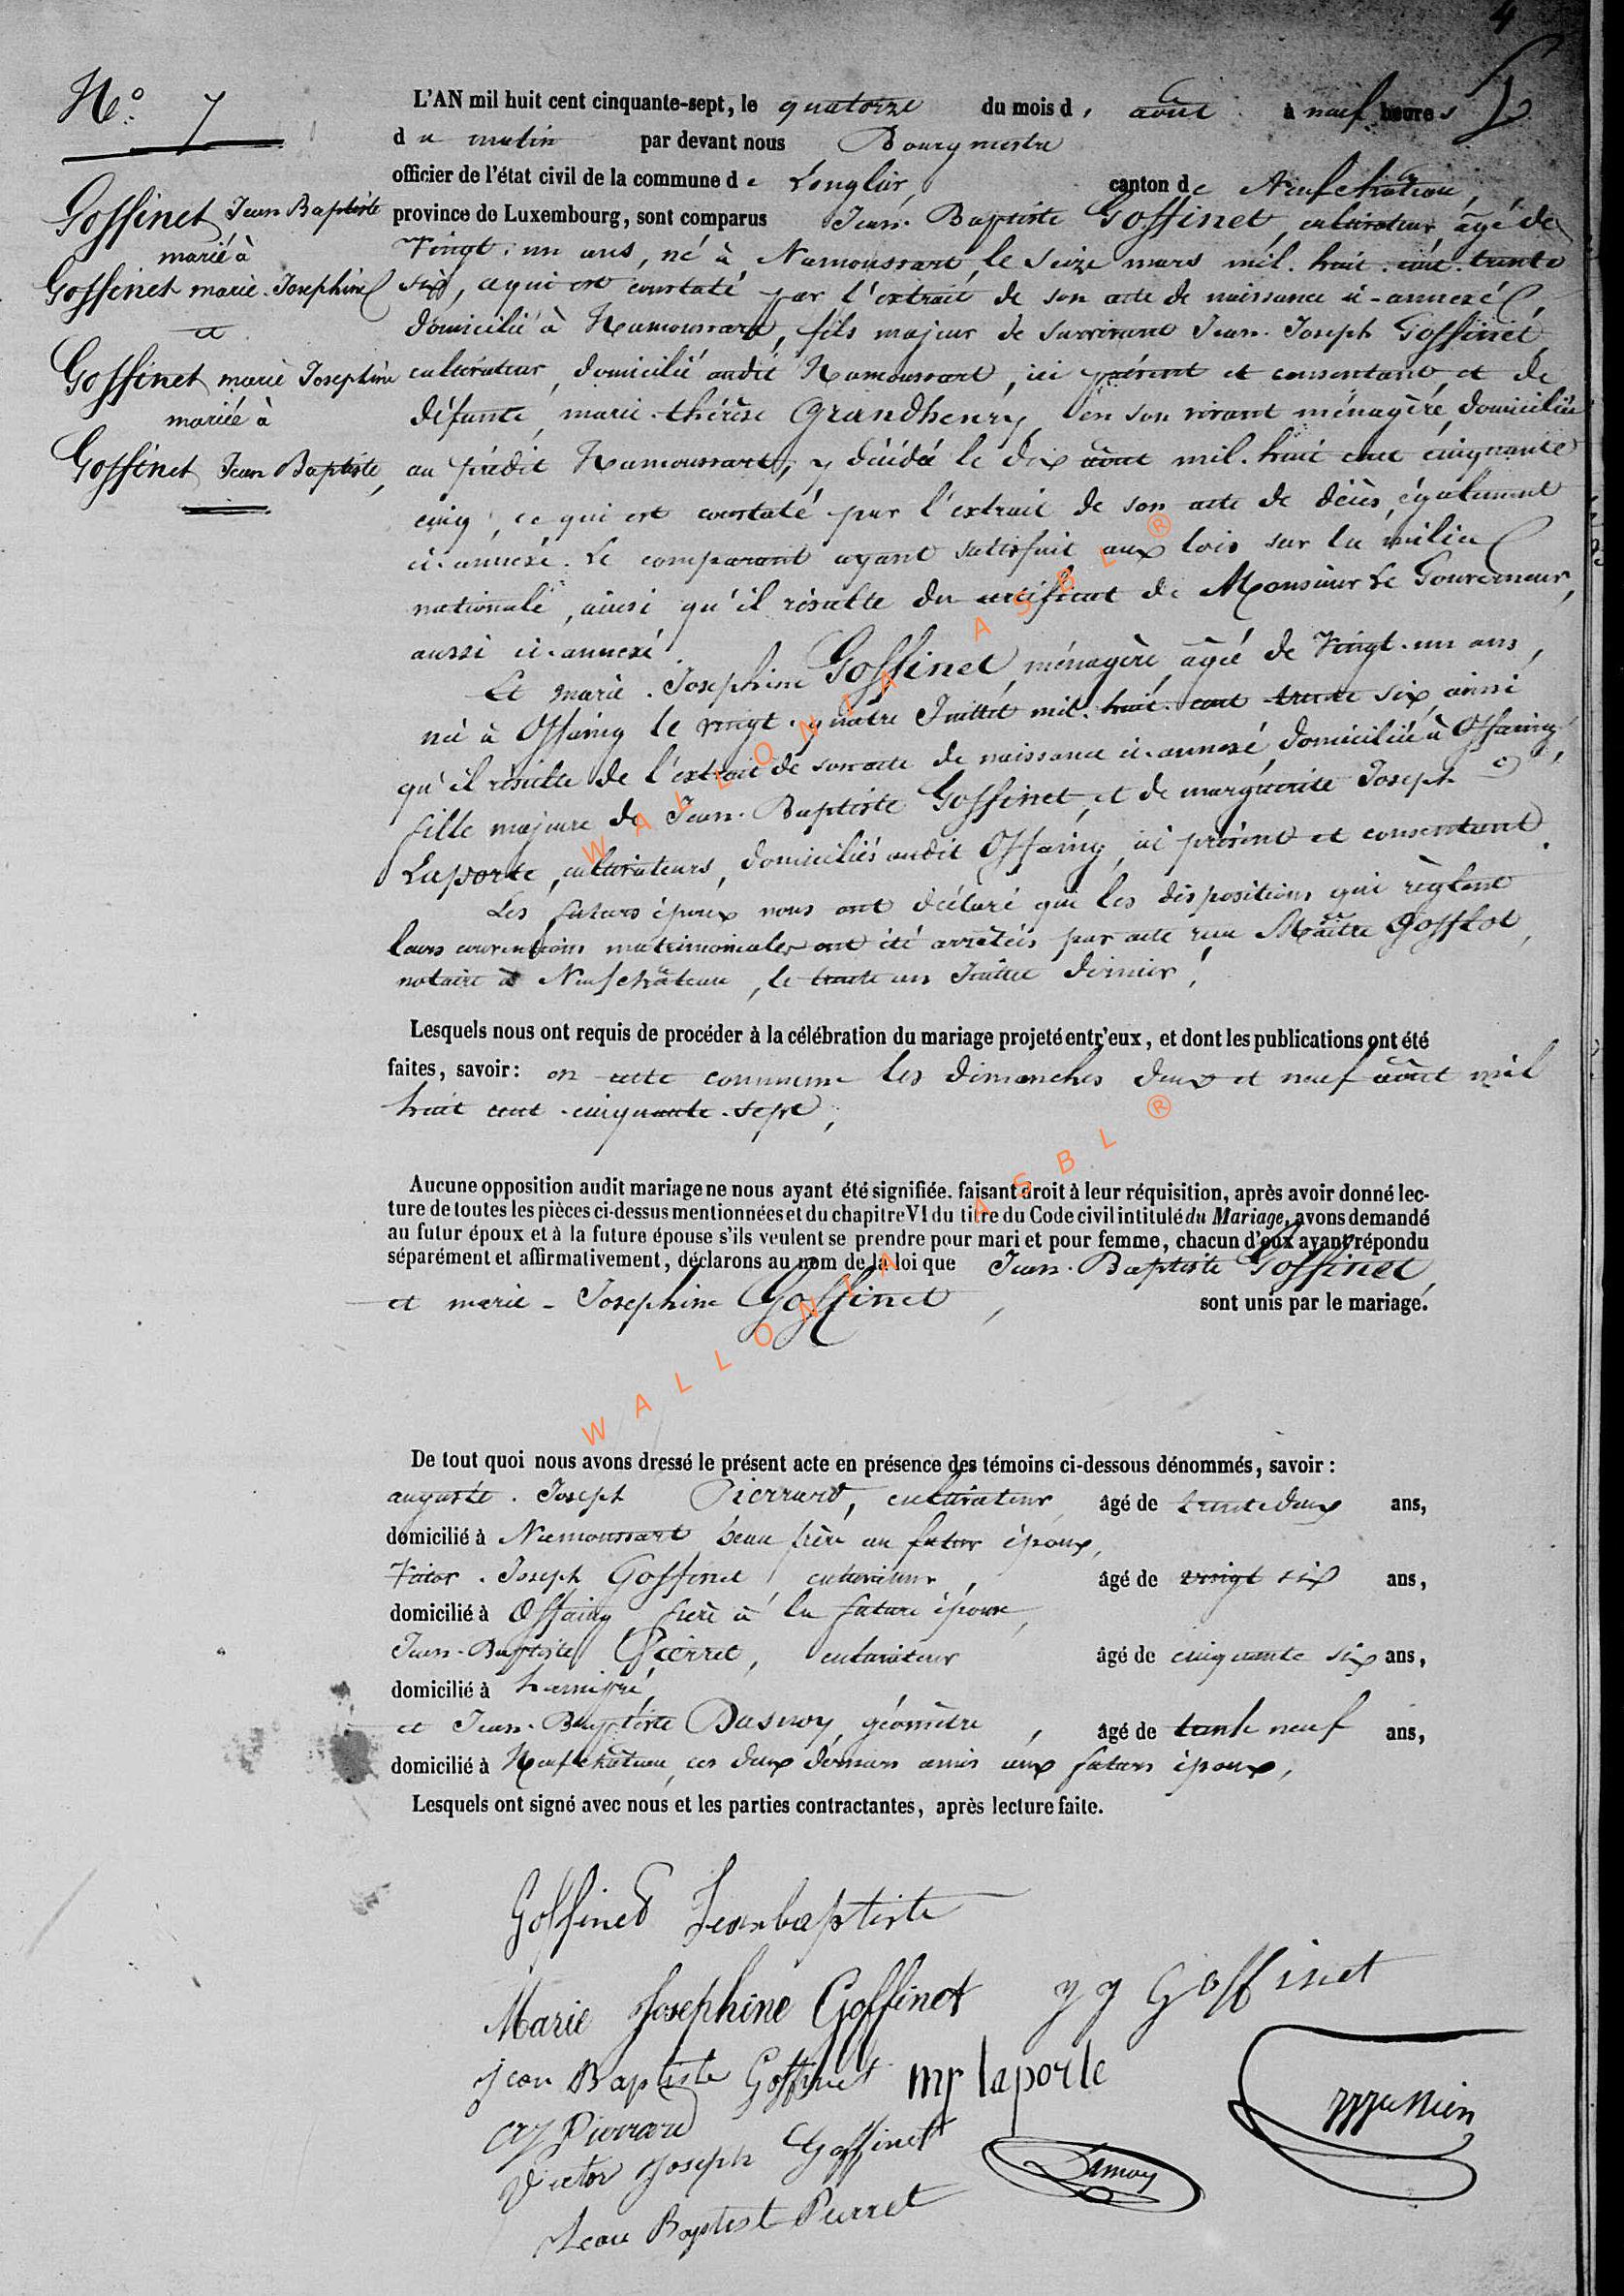 4
N.° 7
Goffinet Jean Baptiste
marié à
Goffinet marie-Josephine
et
Goffinet marie Josephine
mariée à
Goffinet Jean Baptiste,
L'AN mil huit cent cinquante-sept, le quatorze du mois d' août à neuf heures
du matin par devant nous Bourgmestre
officier de l'état civil de la commune de Longlier, canton de Neufchâteau,
province de Luxembourg, sont comparus Jean-Baptiste Goffinet, cultivateur, âgé de
Vingt-un ans, né à Namoussart, le seize mars mil-huit-cent-trente
six, ce qui est constaté par l'extrait de son acte de naissance ci-annexé,
domicilié à Namoussart, fils majeur de survivant Jean-Joseph Goffinet
cultivateur, domicilié audit Namoussart, ici présent et consentant, et de
défunte, marie-thérèse Grandhenry, en son vivant ménagère, domiciliée
au prédit Namoussart, y décédée le dix août mil-huit cent cinquante
cinq, ce qui est constaté par l'extrait de son acte de décès, également
ci-annexé. Le comparant ayant satisfait aux lois sur la milice
nationale, ainsi qu'il résulte du certificat de Monsieur Le Gouverneur,
aussi ci-annexé.
Et marie-Josephine Goffinet, ménagère, âgée de Vingt-un ans,
née à Offaing le vingt-quatre Juillet mil-huit-cent-trente six, ainsi
qu'il résulte de l'extrait de son acte de naissance ci-annexé, domiciliée à Offaing,
fille majeure de Jean-Baptiste Goffinet, et de marguerite Joseph
Laporte, cultivateurs, domiciliés audit Offaing, ici présent et consentant.
Les futurs époux nous ont déclaré que les dispositions qui règlent
leurs conventions matrimoniales ont été arrêtées par acte reçu Maître Gofflot,
notaire à Neufchâteau, le trente un Juillet dernier,
Lesquels nous ont requis de procéder à la célébration du mariage projeté entr'eux, et dont les publications ont été
faites, savoir: en cette commune les dimanches deux et neuf août mil
huit cent-cinquante-sept,
Aucune opposition audit mariage ne nous ayant été signifiée. faisant droit à leur réquisition, après avoir donné lec-
ture de toutes les pièces ci-dessus mentionnées et du chapitre VI du titre du Code civil intitulé du Mariage, avons demandé
au futur époux et à la future épouse s'ils veulent se prendre pour mari et pour femme, chacun d'eux ayant répondu
séparément et affirmativement, déclarons au nom de la loi que Jean-Baptiste Goffinet,
et marie-Josephine Goffinet, sont unis par le mariage.
De tout quoi nous avons dressé le présent acte en présence des témoins ci-dessous dénommés, savoir:
auguste-Joseph Pierrard, cultivateur, âgé de trente deux ans,
domicilié à Namoussart beau frère au futur époux,
Victor-Joseph Goffinet, cultivateur, âgé de vingt six ans,
domicilié à Offaing frère à la future épouse,
Jean-Baptiste Pierret, cultivateur âgé de cinquante six ans,
domicilié à Hamipré,
et Jean-Baptiste Dasnoy, géomètre, âgé de trente neuf ans,
domicilié à Neufchâteau, ces deux derniers amis aux futurs époux,
Lesquels ont signé avec nous et les parties contractantes, après lecture faite.
Goffinet Jean baptiste
Marie Josephine Goffinet J J Goffinet
Jean Baptiste Goffinet mj laporte
AJ Pierrard
Victor Joseph Goffinet Dasnoy
Jean Baptist Pierret
WALLONIA ASBL ®
WALLONIA ASBL ®